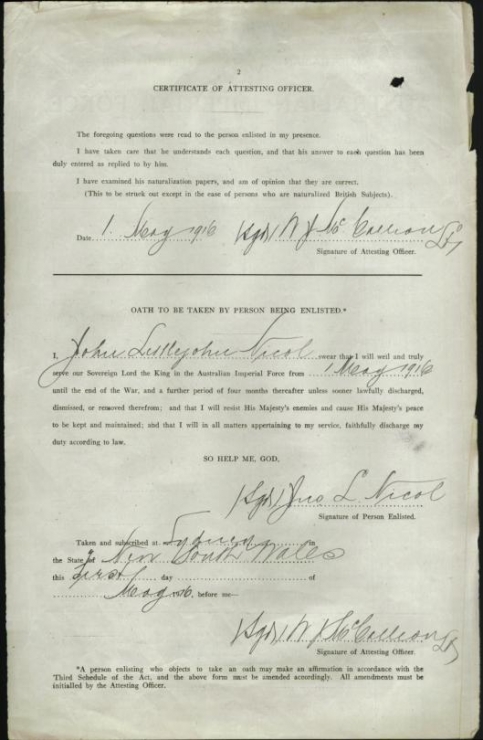 2
CERTIFICATE OF ATTESTING OFFICER.
The foregoing questions were read to the person enlisted in my presence.
I have taken care that he understands each question, and that his answer to each question has been
duly entered as replied to by him.
I have examined his naturalization papers, and am of opinion that they are correct.
(This to be struck out except in the case of persons who are naturalized British Subjects).
Date 1 May 1916 (Sgd) W J McCallion Lt
Signature of Attesting Officer.
OATH TO BE TAKEN BY PERSON BEING ENLISTED.*
I, John Littlejohn Nicol swear that I will well and truly
serve our Sovereign Lord the King in the Australian Imperial Force from 1 May 1916
until the end of the War, and a further period of four months thereafter unless sooner lawfully discharged,
dismissed, or removed therefrom; and that I will resist His Majesty's enemies and cause His Majesty's peace
to be kept and maintained; and that I will in all matters appertaining to my service, faithfully discharge my
duty according to law.
SO HELP ME, GOD.
(Sgd) Jno L. Nicol
Signature of Person Enlisted.
Taken and subscribed at Sydney in
the State of New South Wales
this first day of
May 1916, before me—
(Sgd) W J McCallion Lt
Signature of Attesting Officer.
*A person enlisting who objects to take an oath may make an affirmation in accordance with the
Third Schedule of the Act, and the above form must be amended accordingly. All amendments must be
initialled by the Attesting Officer.